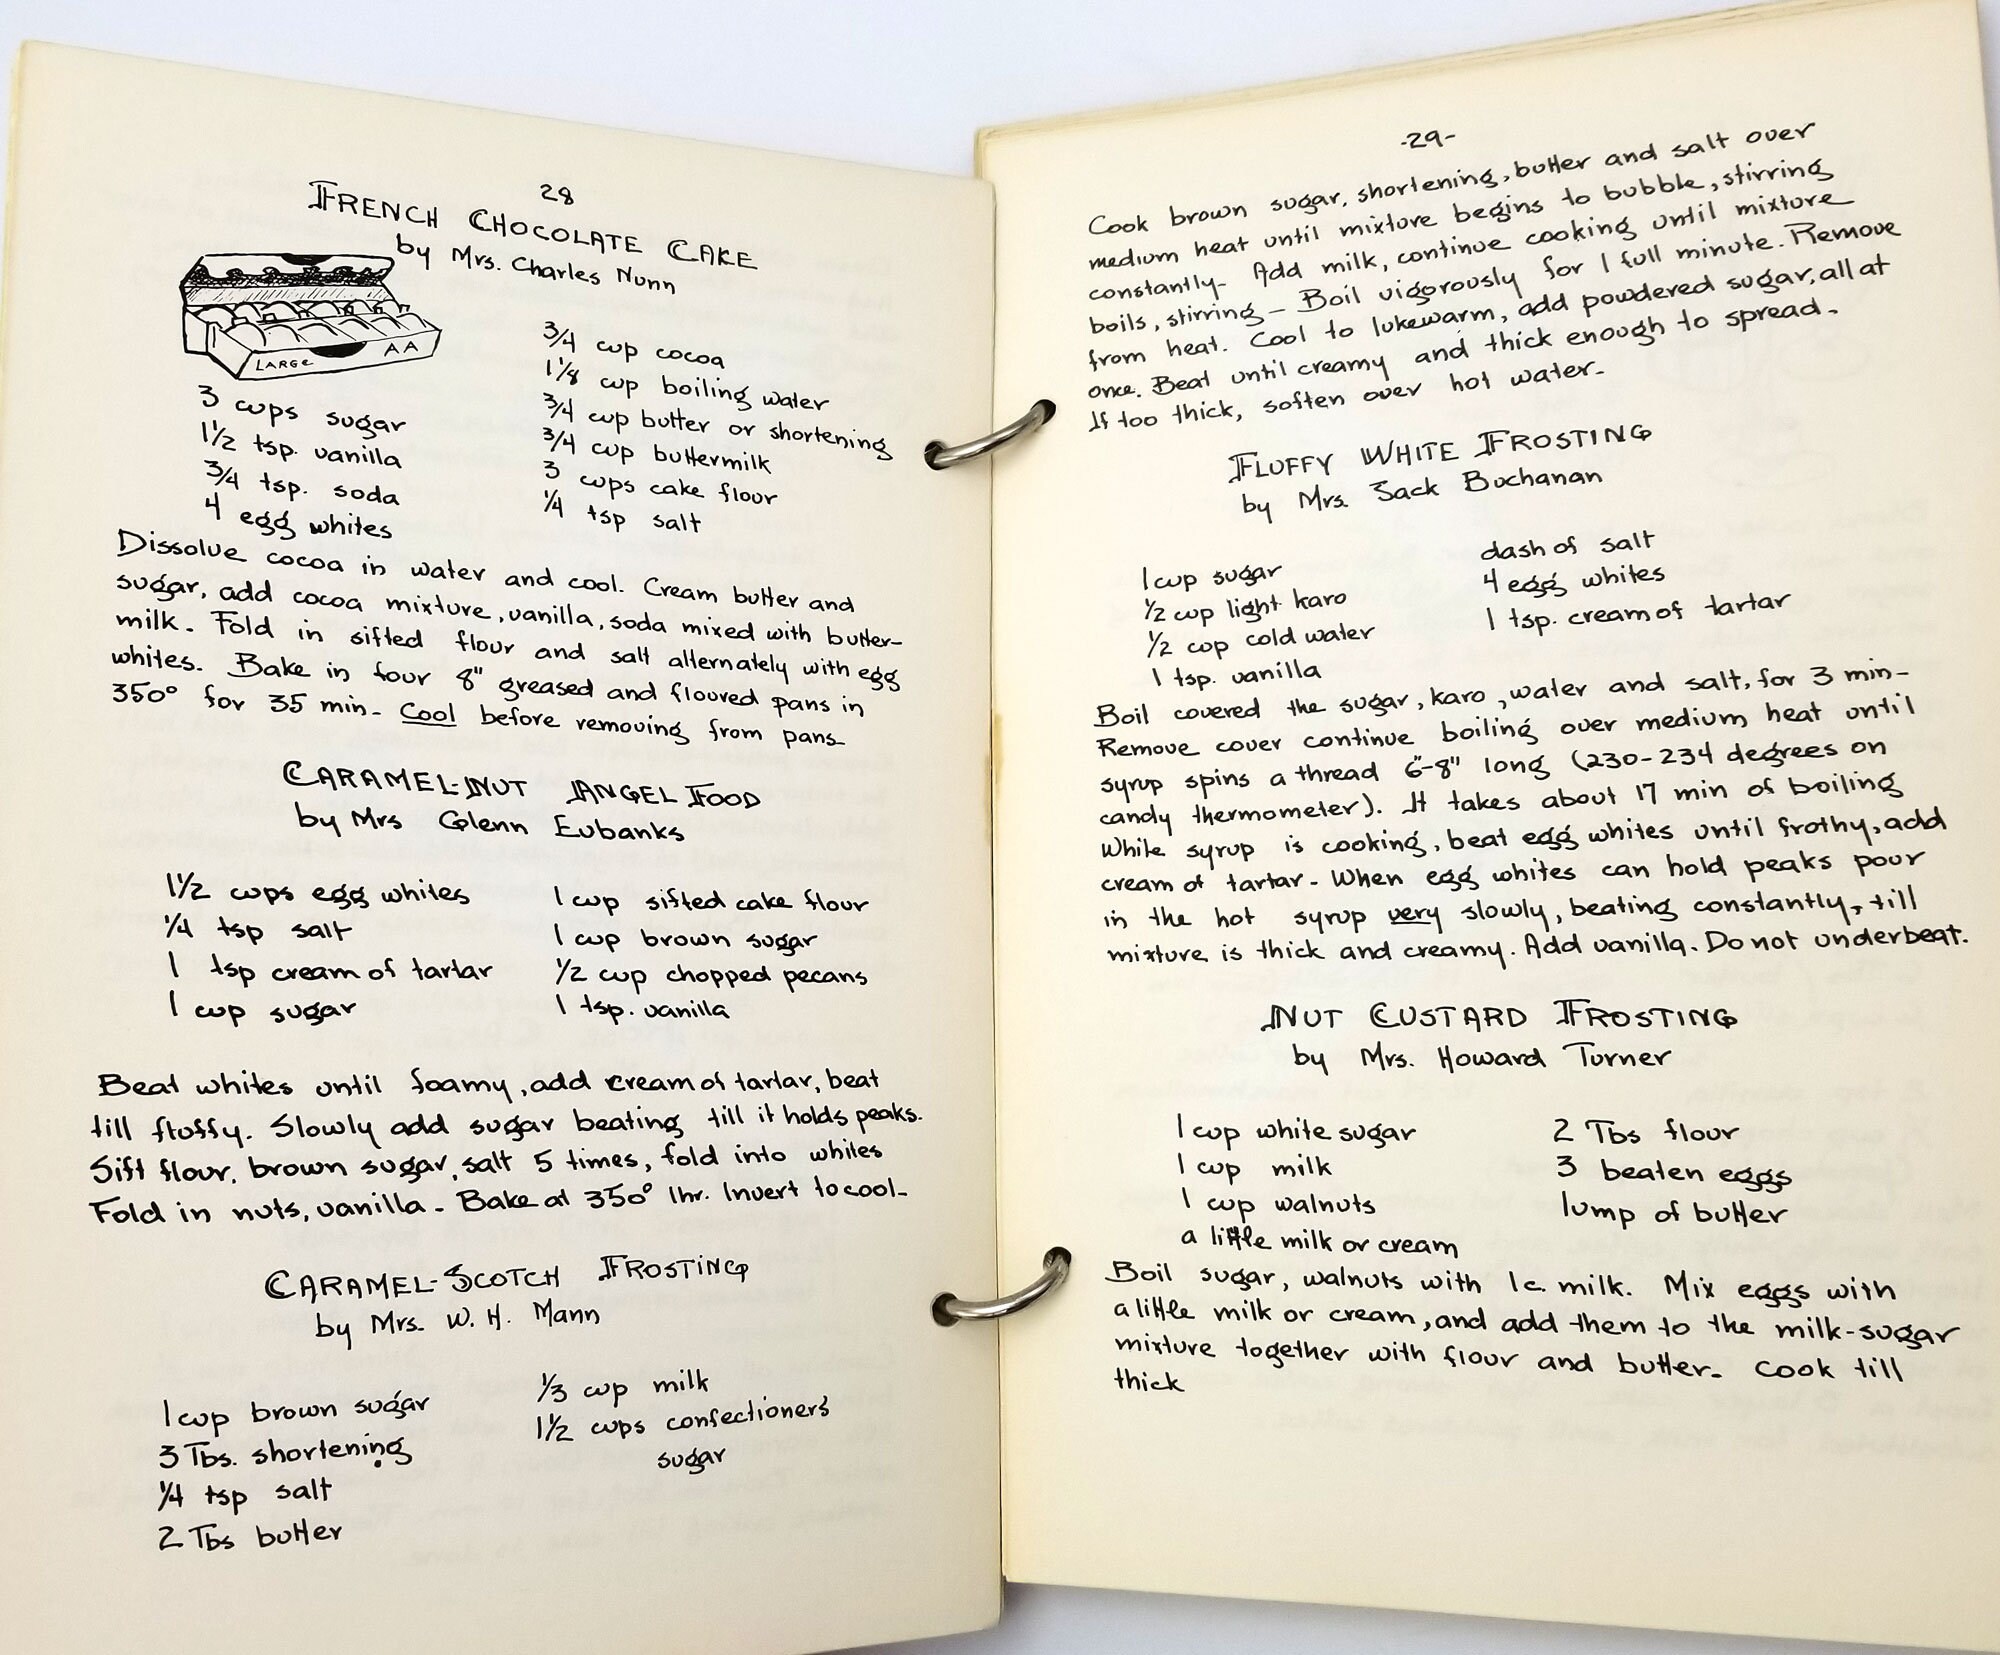 28
FRENCH CHOCOLATE CAKE
by Mrs. Charles Nunn
LARGE AA
3 cups sugar
1 1/2 tsp. vanilla
3/4 tsp. soda
4 egg whites
3/4 cup cocoa
1 1/8 cup boiling water
3/4 cup butter or shortening
3/4 cup buttermilk
3 cups cake flour
1/4 tsp salt
Dissolve cocoa in water and cool. Cream butter and
sugar, add cocoa mixture, vanilla, soda mixed with butter-
milk. Fold in sifted flour and salt alternately with egg
whites. Bake in four 8" greased and floured pans in
350° for 35 min- Cool before removing from pans
CARAMEL-NUT ANGEL FOOD
by Mrs Glenn Eubanks
1 1/2 cups egg whites
1/4 tsp salt
1 tsp cream of tartar
1 cup sugar
1 cup sifted cake flour
1 cup brown sugar
1/2 cup chopped pecans
1 tsp. vanilla
Beat whites until foamy, add cream of tartar, beat
till fluffy. Slowly add sugar beating till it holds peaks.
Sift flour, brown sugar, salt 5 times, fold into whites
Fold in nuts, vanilla- Bake at 350° 1hr. Invert to cool-
CARAMEL-SCOTCH FROSTING
by Mrs. W. H. Mann
1 cup brown sugar
3 Tbs. shortening
1/4 tsp salt
2 Tbs butter
1/3 cup milk
1 1/2 cups confectioners
sugar
-29-
Cook brown sugar, shortening, butter and salt over
medium heat until mixture begins to bubble, stirring
constantly- Add milk, continue cooking until mixture
boils, stirring- Boil vigorously for 1 full minute. Remove
from heat. Cool to lukewarm, add powdered sugar, all at
once. Beat until creamy and thick enough to spread.
If too thick, soften over hot water-
FLUFFY WHITE FROSTING
by Mrs. Jack Buchanan
1 cup sugar
1/2 cup light karo
1/2 cup cold water
1 tsp. vanilla
dash of salt
4 egg whites
1 tsp. cream of tartar
Boil covered the sugar, karo, water and salt, for 3 min-
Remove cover continue boiling over medium heat until
syrup spins a thread 6"-8" long (230-234 degrees on
candy thermometer). It takes about 17 min of boiling
While syrup is cooking, beat egg whites until frothy, add
cream of tartar- When egg whites can hold peaks pour
in the hot syrup very slowly, beating constantly, till
mixture is thick and creamy. Add vanilla. Do not underbeat.
NUT CUSTARD FROSTING
by Mrs. Howard Turner
1 cup white sugar
1 cup milk
1 cup walnuts
a little milk or cream
2 Tbs flour
3 beaten eggs
lump of butter
Boil sugar, walnuts with 1c. milk. Mix eggs with
a little milk or cream, and add them to the milk-sugar
mixture together with flour and butter. Cook till
thick